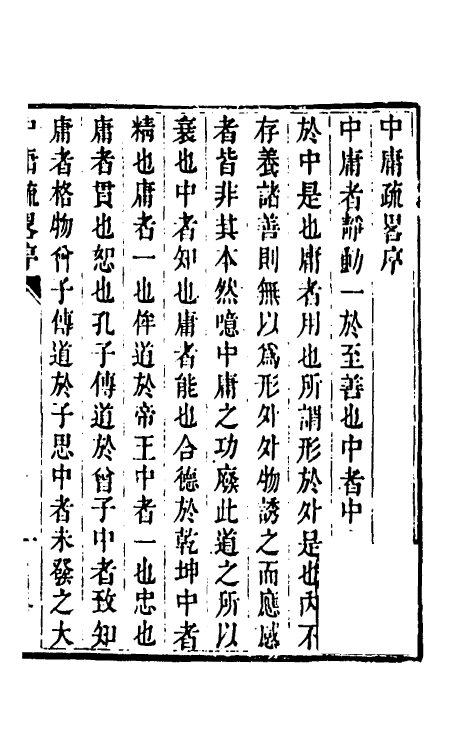 中庸疏畧序
中庸者靜動一於至善也中者中
於中是也庸者用也所謂形於外是也內不
存養諸善則無以爲形外外物誘之而應感
者皆非其本然噫中庸之功廢此道之所以
衰也中者知也庸者能也合德於乾坤中者
精也庸者一也侔道於帝王中者一也忠也
庸者貫也恕也孔子傳道於曾子中者致知
庸者格物曾子傳道於子思中者未發之大
中庸疏畧序 一